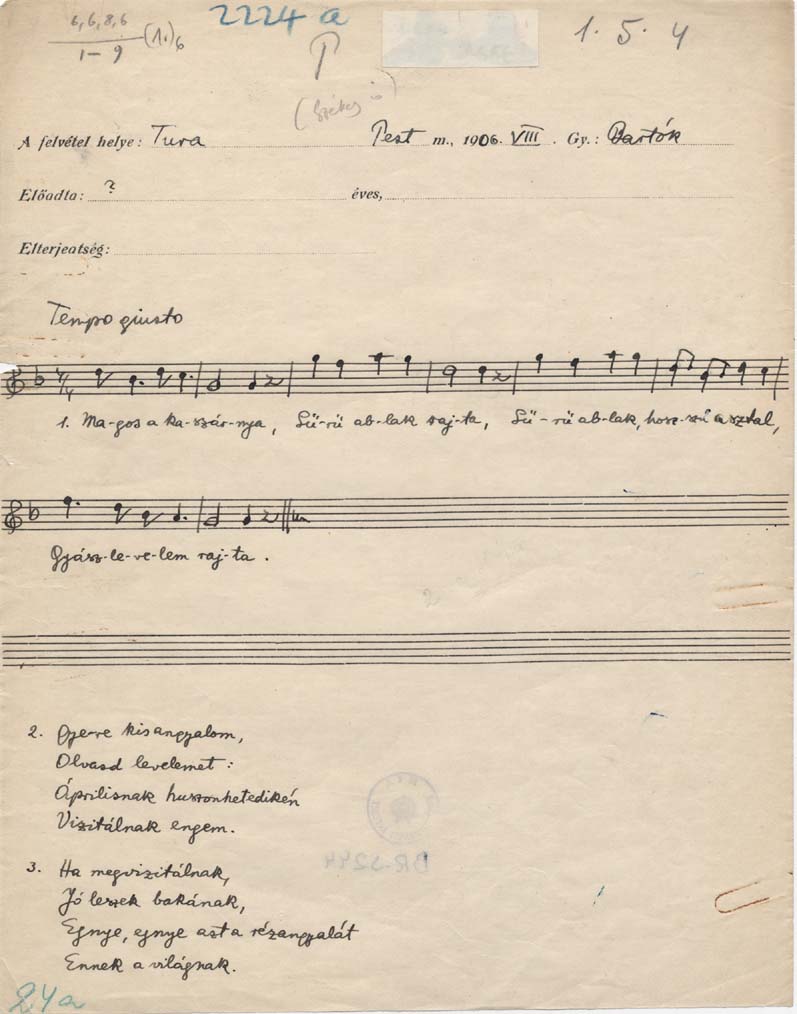 6, 6, 8, 6
1–9 (1.)6
2224 a
1. 5. 4
P
(székes is)
A felvétel helye: Tura Pest m., 1906. VIII. Gy.: Bartók
Előadta: ? éves,
Elterjeatség:
Tempo giusto
1. Ma-gos a ka-szár-nya, Sü-rü ab-lak raj-ta, Sü-rü ab-lak, hosz-szú asztal,
Gyász-le-ve-lem raj-ta.
2. Gyere kisangyalom,
Olvasd levelemet:
Áprilisnak huszonhetedikén
Vizitálnak engem.
3. Ha megvizitálnak,
Jó leszek bakának,
Ejnye, ejnye azt a rézangyalát
Ennek a világnak.
BR-3244
24a